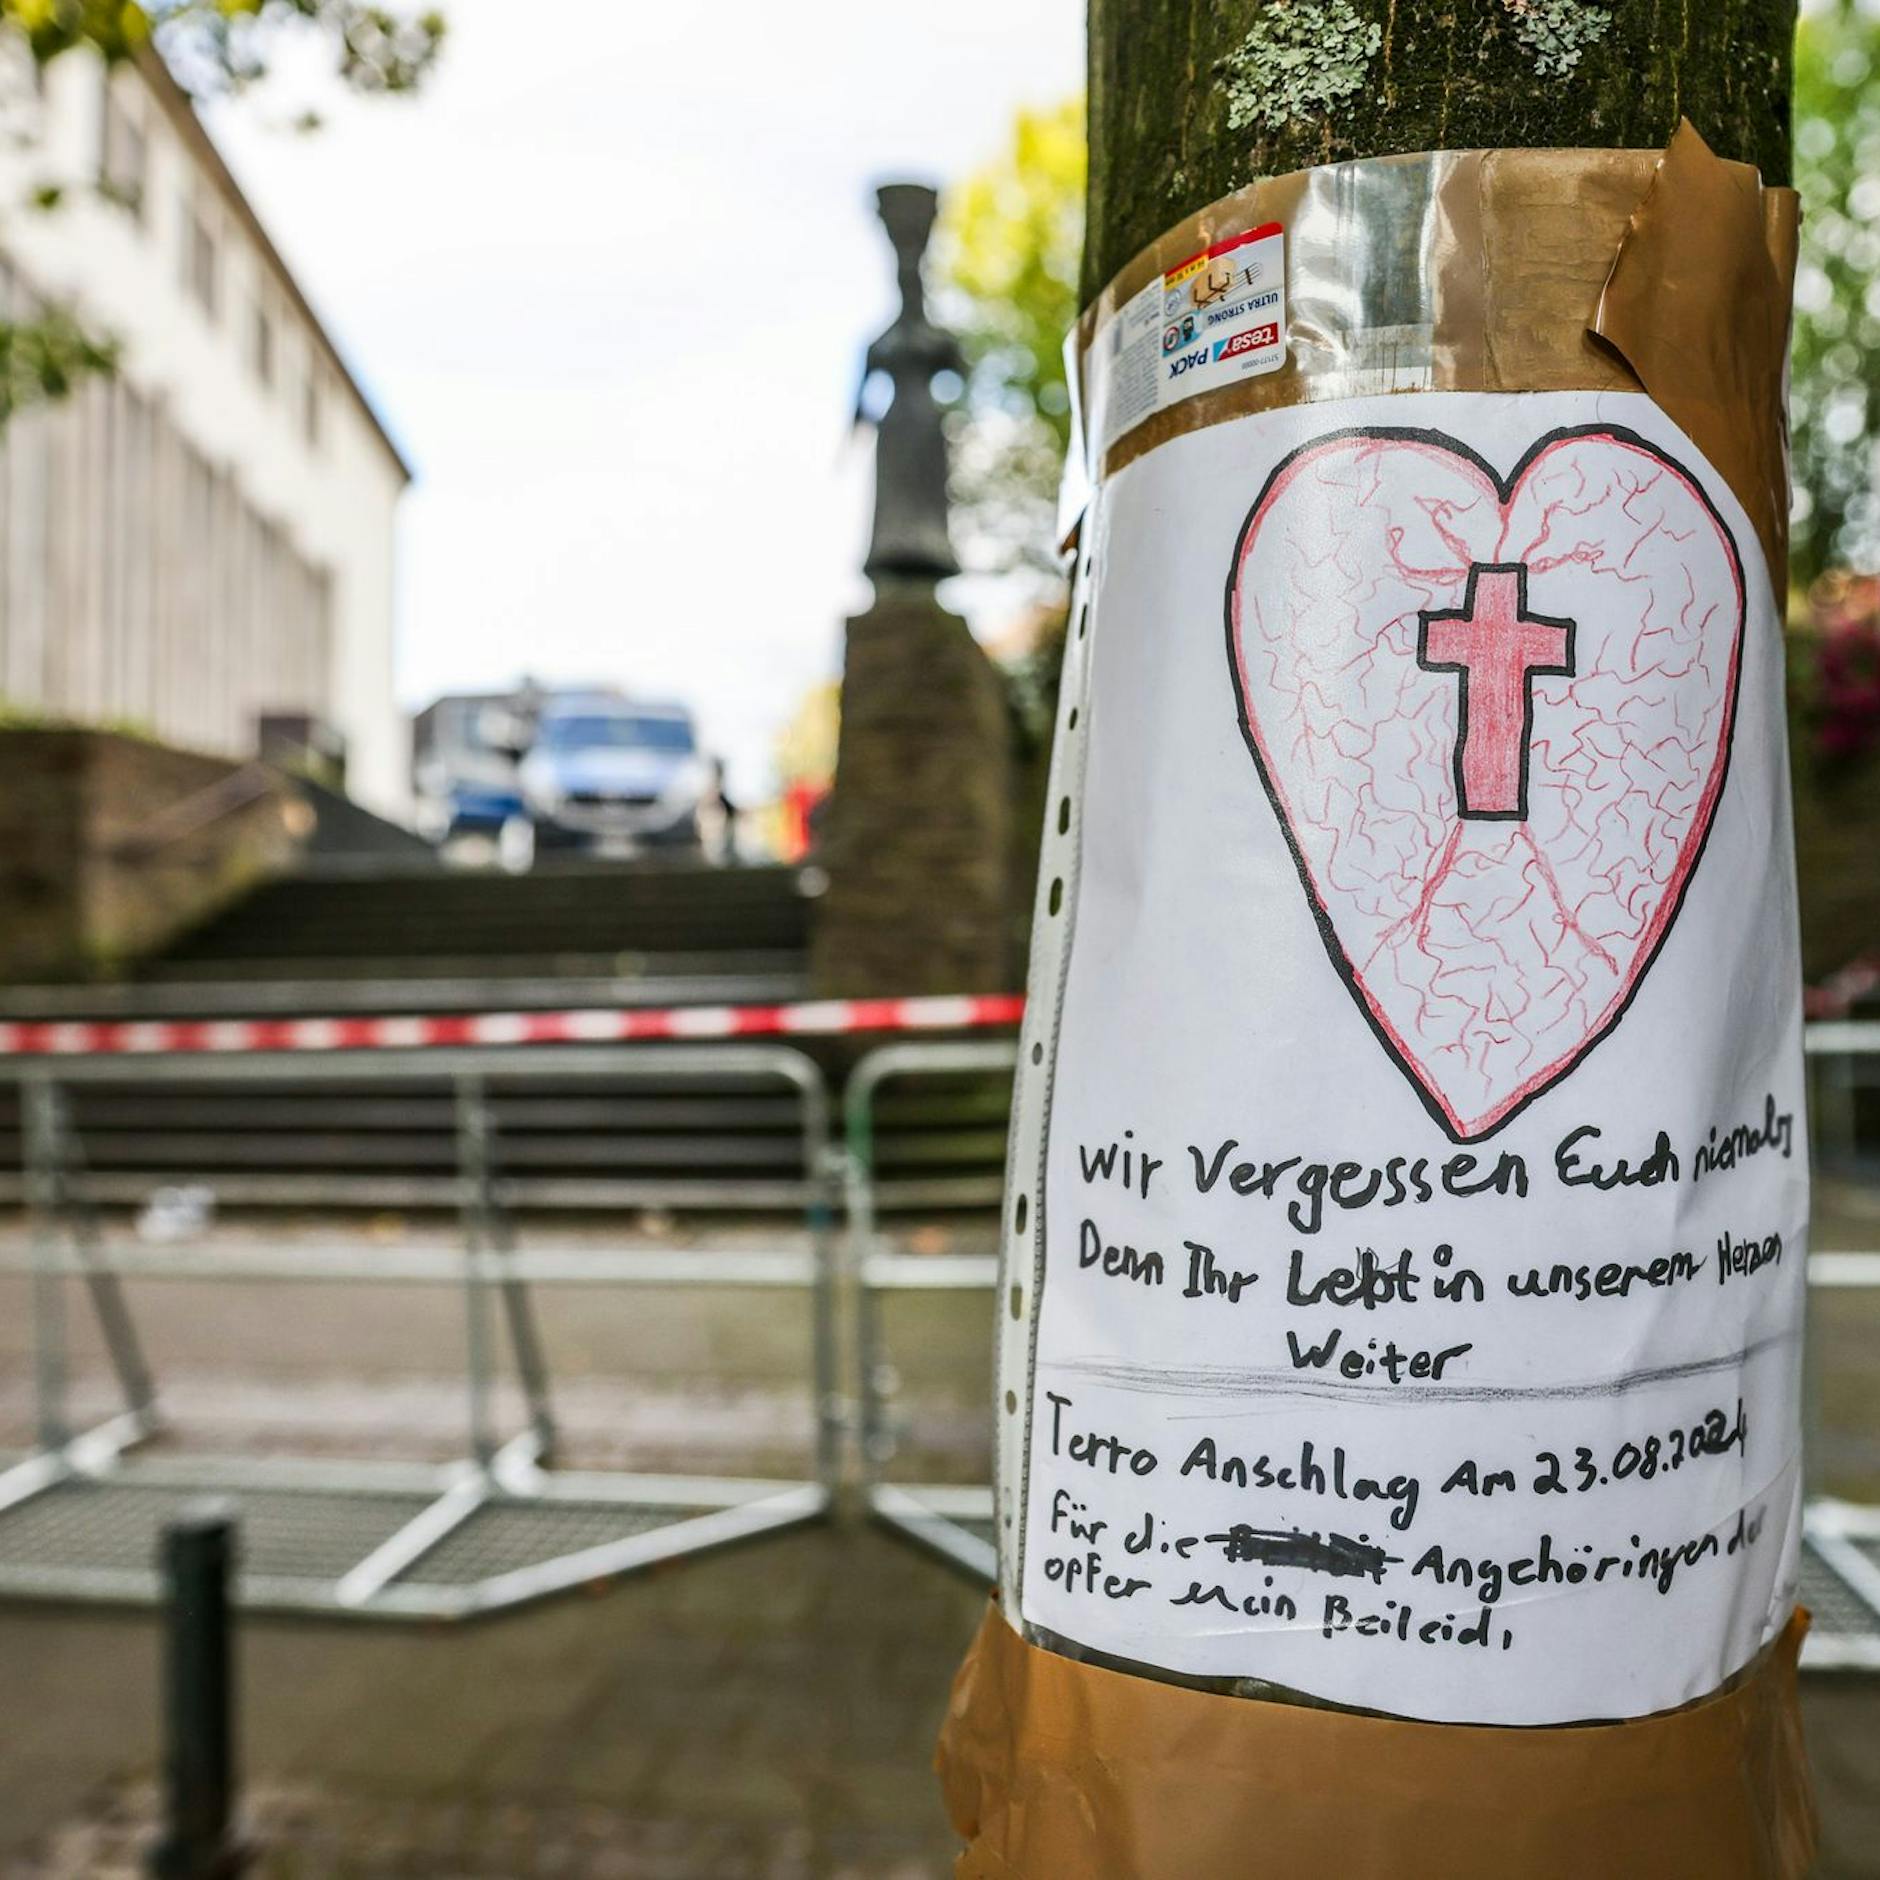 tesa PACK
ULTRA STRONG
57177-00000
Wir Vergessen Euch niemals
Denn Ihr Lebt in unserem Herzen
Weiter
Terro Anschlag Am 23.08.2024
für die Angehöringen der
opfer Mein Beileid,